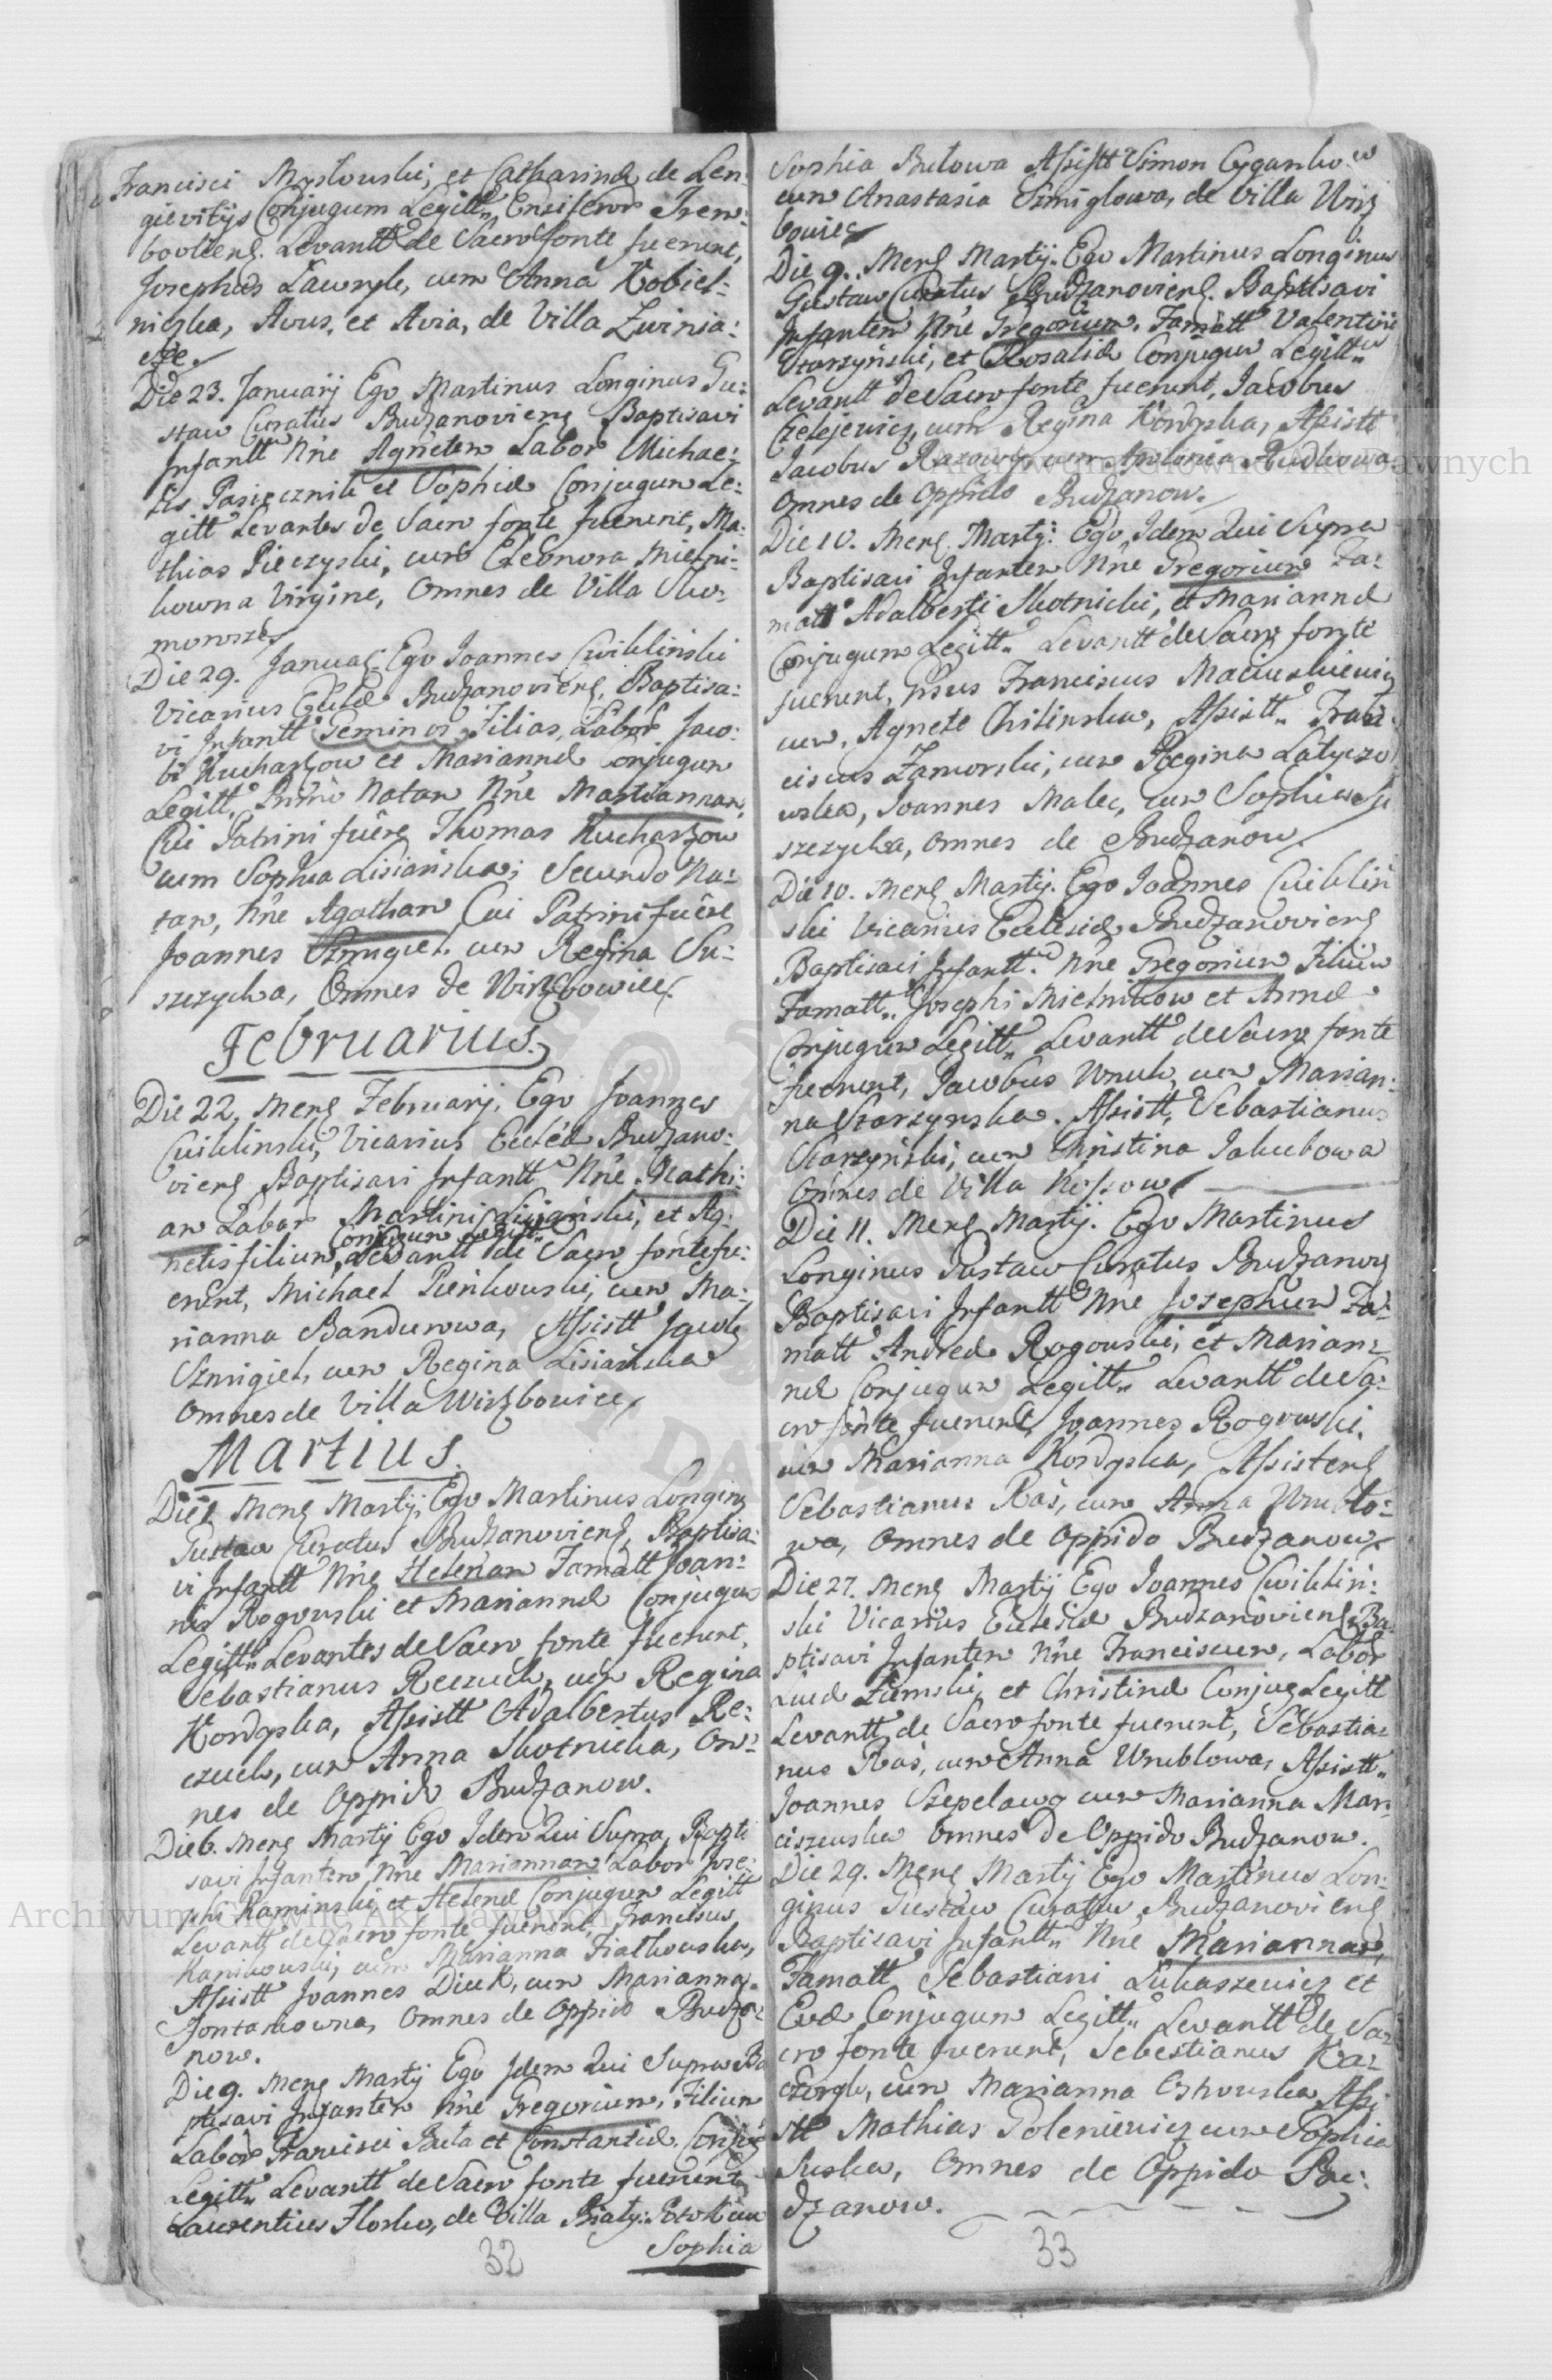 Francisci Mysłowski, et Catharinæ de Len:
gievitijs Conjugum Legitt. Ensiferor Trem:
bovliens. Levantt de Sacro fonte fuerunt,
Josephus Ławryk, cum Anna Kobiel:
nicka, Avus, et Avia, de Villa Zwinia:
cze.
Die 23. Januarij Ego Martinus Longinus Gu:
staw Curatus Budzanoviens Baptisavi
Infantt Nne Agneten Labor Michae:
lis Pasiecznik et Sophiæ Conjugum Le:
gitt Levantes de Sacro fonte fuerunt, Ma:
thias Pieczyski, cum Eleonora Mielni:
kowna Virgine, Omnes de Villa Sko:
morosze
Die 29. Januar: Ego Joannes Cwikliński
Vicarius Eccle Budzanoviens, Baptisa:
vi Infantt Geminos Filias, Labor Jaco:
bi Kucharzow et Mariannæ Conjugum
Legitt, Primo Natam Nne Mariannam,
Cui Patrini fuere Thomas Kucharzow
cum Sophia Lisiańska; Secundo Na:
tam, Nne Agatham Cui Patrini fuere
Joannes Szmigiel cum Regina Su:
szczycka, Omnes de Wirzbowiec.
Februarius.
Die 22, Mens Februarij. Ego Joannes
Cwikliński, Vicarius Ecclæ Budzano:
viens Baptisavi Infantt Nne Mathi:
am Labor Martini Lisiański, et Ag:
Conjugum Legitt
netis filium, Levantt de Sacro fonte fu:
erunt, Michael Pieńkowski, cum Ma:
rianna Bandurowa, Assistt Jacob
Szmigiel, cum Regina Lisiańska
Omnes de Villa Wirzbowiec
Martius.
Die 1 Mens Martij, Ego Martinus Longing
Gustaw Curatus Budzanoviens, Baptisa:
vi Infantt Nne Helenam Famatt Joan:
nis Rogowski et Mariannæ Conjugum
Legitt Levantes de Sacro fonte fuerunt,
Sebastianus Reczuch, cum Regina
Kordyska, Assistt Adalbertus Re:
czuch, cum Anna Skotnicka, Om:
nes de Oppido Budzanow.
Die 6. Mens Martij Ego Idem Qui Supra, Bapti
savi Infantem Nne Mariannam Labor Jose:
phi Kaminski, et Helenæ Conjugum Legitt
Levantt de Sacro fonte fuerunt, Franciscus
Kanikowski, cum Marianna Fiałkowska,
Assistt Joannes Diuk, cum Marianna
Jontakowna, Omnes de Oppido Budza:
now.
Die 9. Mens Martij Ego Idem Qui Supra Ba
ptisavi Infantem Nne Gregorium, Filium
Labor Francisci Buta et Constantiæ Conjug
Legitt Levantt de Sacro fonte fuerunt
Laurentius Ilosko, de Villa Biały: Potok cum
Sophia
32
Sophia Butowa Assistt Simon Cygankow
cum Anastasia Szmiglowa, de Villa Wirz
bowiec
Die 9. Mens Martij. Ego Martinus Longinus
Gustaw Curatus Budzanoviens. Baptisavi
Infantem Nne Gregorium, Famatt Valentini
Starzyński, et Rosaliæ Conjugum Legitt
Levantt de Sacro fonte fuerunt, Jacobus
Czelejewicz, cum Regina Kordyska, Assistt
Jacobus Razowy cum Apolonia Rudkowa
Omnes de Oppido Budzanow.
Die 10. Mens Martij: Ego Idem Qui Supra
Baptisavi Infantem Nne Gregorium Fa:
matt Adalberti Skotnicki, et Mariannæ
Conjugum Legitt Levantt de Sacro fonte
fuerunt, Gsus Franciscus Maciuskiewicz
cum, Agnete Chilinska, Assistt Fran:
ciscus Zamorski, cum Regina Latyczo
wska, Joannes Malec, cum Sophia Su
szczycka, Omnes de Budzanow
Die 10. Mens Martij. Ego Joannes Cwikliń
ski Vicarius Ecclesiæ Budzanoviens
Baptisavi Infantt Nne Gregorium Filium
Famatt Josephi Mielnikow et Annæ
Conjugum Legitt Levantt de Sacro fonte
fuerunt, Jacobus Wnuk, cum Marian:
na Starzynska. Assistt, Sebastianus
Starzyński, cum Christina Jakubowa
Omnes de Villa Kossow
Die 11. Mens Martij. Ego Martinus
Longinus Gustaw Curatus Budzanow
Baptisavi Infantt Nne Josephum Fa:
matt Andreæ Rogowski, et Marian:
næ Conjugum Legitt Levantt de Sa:
cro fonte fuerunt, Joannes Rogowski,
cum Marianna Kordyska, Assistens
Sebastianus Raś, cum Anna Wrublo:
wa, Omnes de Oppido Budzanow
Die 27. Mens Martij Ego Joannes Cwikliń:
ski Vicarius Ecclesiæ Budzanoviens Ba:
ptisavi Infantem Nne Franciscum, Labor
Lucæ Zumski, et Christinæ Conjug Legitt
Levantt de Sacro fonte fuerunt, Sebastia:
nus Raś, cum Anna Wrublowa, Assistt
Joannes Szpelawy cum Marianna Mar:
ciszewska Omnes de Oppido Budzanow.
Die 29. Mens Martij Ego Martinus Lon:
ginus Gustaw Curatus, Budzanoviens
Baptisavi Infantt Nne Mariannam,
Famatt Sebastiani Łukaszewicz et
Evæ Conjugum Legitt Levantt de Sa:
cro fonte fuerunt, Sebestianus Ka:
czorek, cum Marianna Oskowska Assi
stt Mathias Goleniewicz cum Sophia
Suska, Omnes de Oppido Bu:
dzanow.
33
Archiwum Główne Akt Dawnych
Archiwum Główne Akt Dawnych